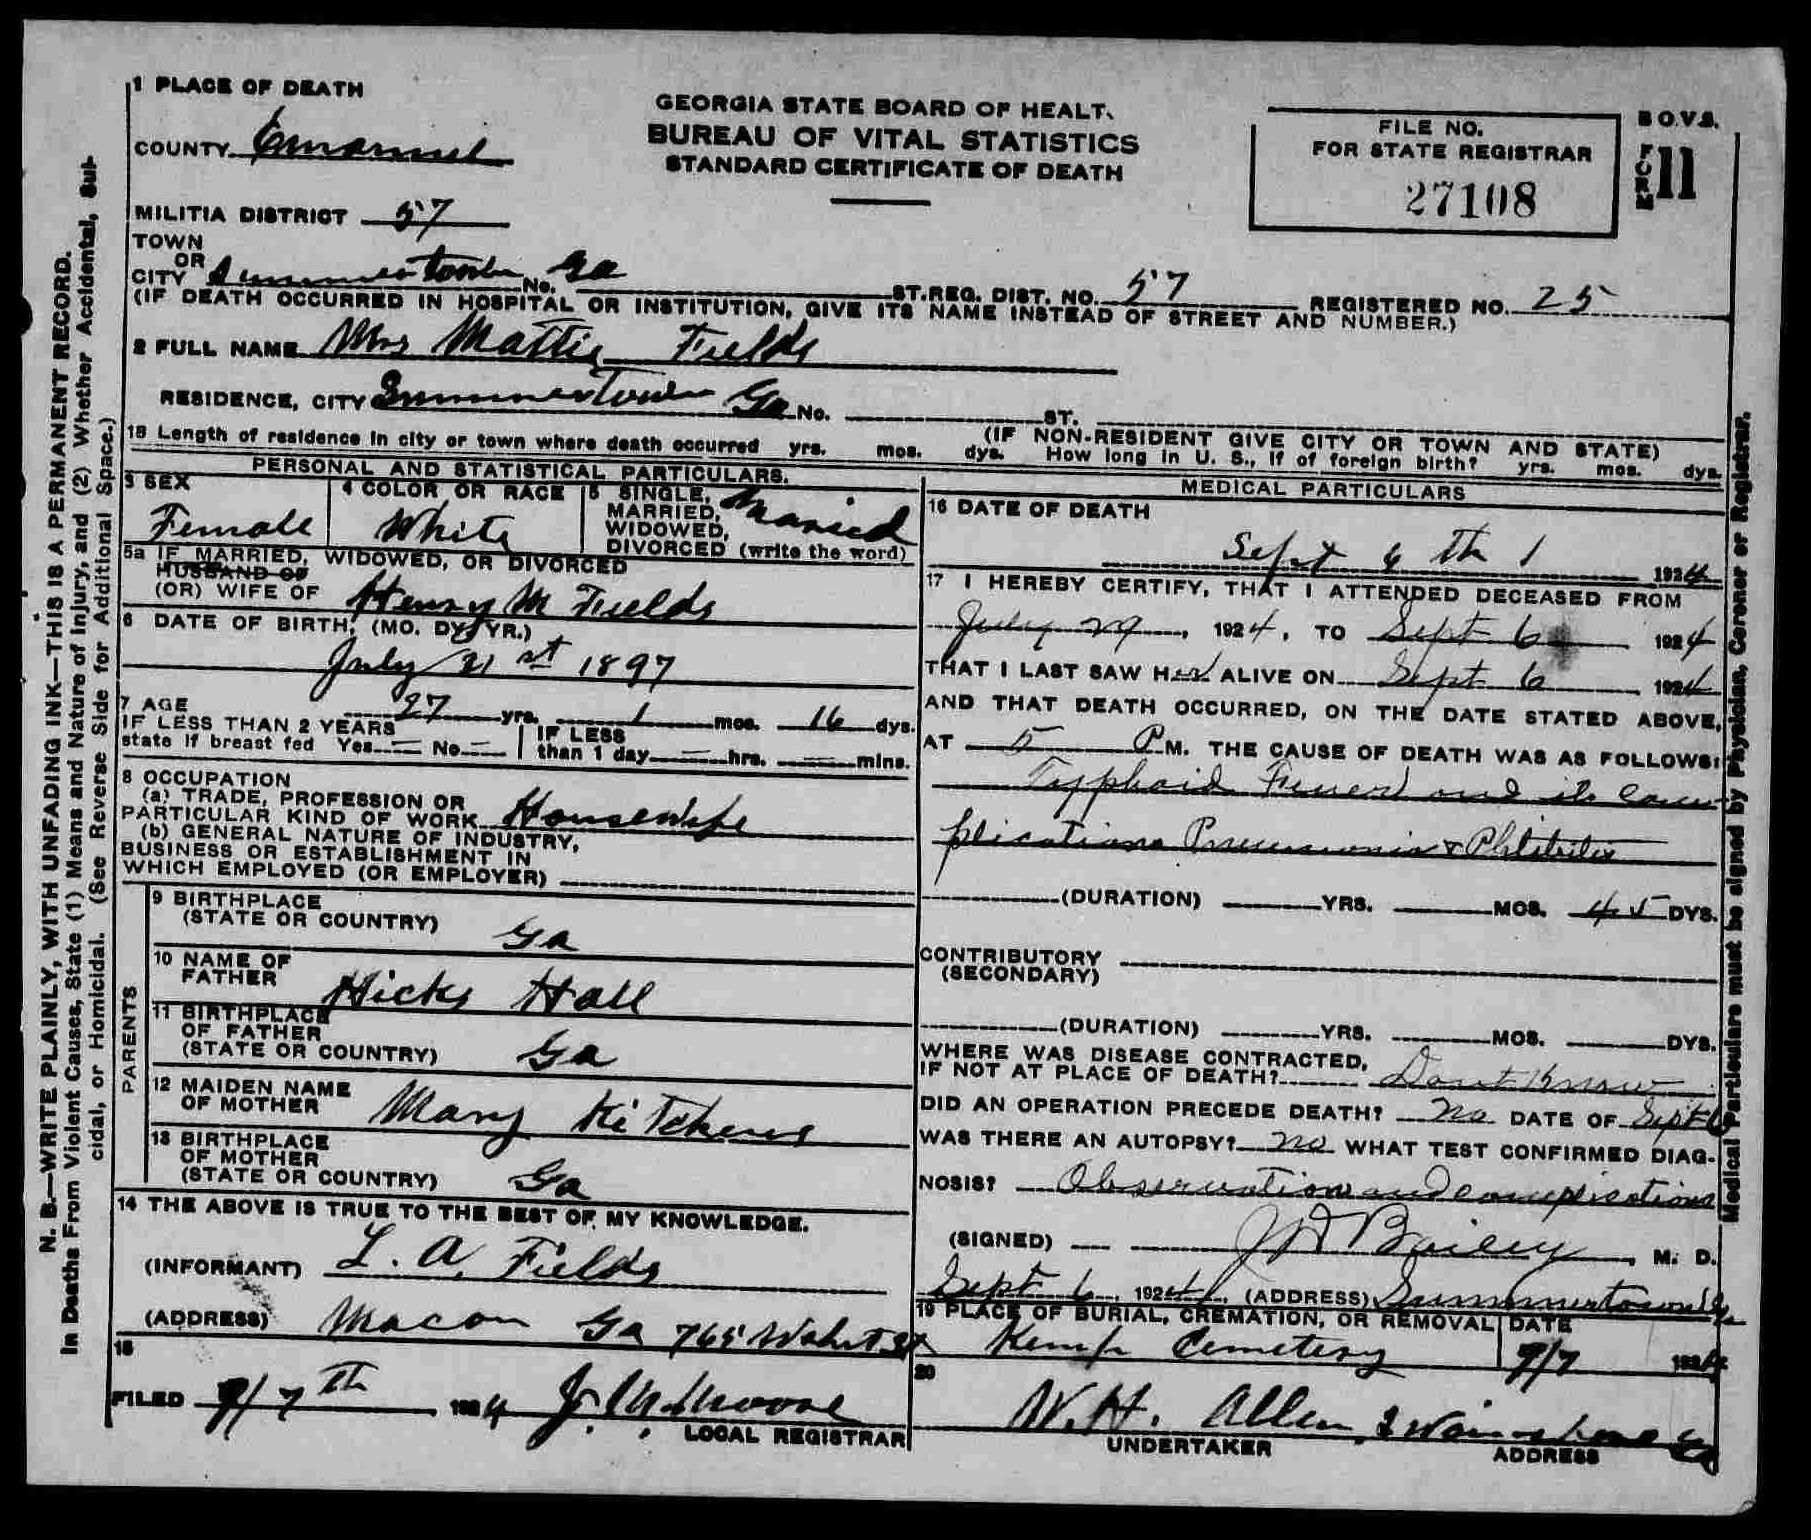 1 PLACE OF DEATH
COUNTY Emanuel
MILITIA DISTRICT 57
TOWN
OR
CITY Summertown No. Ga ST. REG. DIST. NO. 57 REGISTERED NO. 25
(IF DEATH OCCURRED IN HOSPITAL OR INSTITUTION, GIVE ITS NAME INSTEAD OF STREET AND NUMBER.)
GEORGIA STATE BOARD OF HEALT.
BUREAU OF VITAL STATISTICS
STANDARD CERTIFICATE OF DEATH
FILE NO.
FOR STATE REGISTRAR
27108
B.O.V.S.
FORM 11
2 FULL NAME Mrs Mattie Fields
RESIDENCE, CITY Summertown Ga No. ST.
(IF NON-RESIDENT GIVE CITY OR TOWN AND STATE)
15 Length of residence in city or town where death occurred yrs. mos. dys. How long in U. S., if of foreign birth? yrs. mos. dys.
PERSONAL AND STATISTICAL PARTICULARS.
3 SEX
Female
4 COLOR OR RACE
White
5 SINGLE,
MARRIED,
WIDOWED,
DIVORCED (write the word)
Married
5a IF MARRIED, WIDOWED, OR DIVORCED
HUSBAND OF
(OR) WIFE OF Henry M Fields
6 DATE OF BIRTH, (MO. DY. YR.)
July 21st 1897
7 AGE 27 yrs. 1 mos. 16 dys.
IF LESS THAN 2 YEARS
state if breast fed Yes No
IF LESS
than 1 day hrs. mins.
8 OCCUPATION
(a) TRADE, PROFESSION OR
PARTICULAR KIND OF WORK Housewife
(b) GENERAL NATURE OF INDUSTRY,
BUSINESS OR ESTABLISHMENT IN
WHICH EMPLOYED (OR EMPLOYER)
PARENTS
9 BIRTHPLACE
(STATE OR COUNTRY) Ga
10 NAME OF
FATHER Hicks Hall
11 BIRTHPLACE
OF FATHER
(STATE OR COUNTRY) Ga
12 MAIDEN NAME
OF MOTHER Mary Kitchens
13 BIRTHPLACE
OF MOTHER
(STATE OR COUNTRY) Ga
14 THE ABOVE IS TRUE TO THE BEST OF MY KNOWLEDGE.
(INFORMANT) L. A. Fields
(ADDRESS) Macon Ga 765 Walnut St
15
FILED 9/7th 1924 J. Moore
LOCAL REGISTRAR
MEDICAL PARTICULARS
16 DATE OF DEATH
Sept 6th 1924
17 I HEREBY CERTIFY, THAT I ATTENDED DECEASED FROM
July 29, 1924, TO Sept 6 1924
THAT I LAST SAW Her ALIVE ON Sept 6, 1924
AND THAT DEATH OCCURRED, ON THE DATE STATED ABOVE,
AT 5 P M. THE CAUSE OF DEATH WAS AS FOLLOWS:
Typhoid Fever and its com
plications Pneumonia & Phlebitis
(DURATION) YRS. MOS. 45 DYS.
CONTRIBUTORY
(SECONDARY)
(DURATION) YRS. MOS. DYS.
WHERE WAS DISEASE CONTRACTED,
IF NOT AT PLACE OF DEATH? Dont Know
DID AN OPERATION PRECEDE DEATH? No DATE OF Sept 6
WAS THERE AN AUTOPSY? No WHAT TEST CONFIRMED DIAG-
NOSIS? Observation and complications
(SIGNED) Bailey, M. D.
Sept 6, 1924, (ADDRESS) Summertown Ga
19 PLACE OF BURIAL, CREMATION, OR REMOVAL DATE
Kemp Cemetery 9/7 1924
20
W. H. Allen, Swainsboro Ga
UNDERTAKER ADDRESS
N. B.—WRITE PLAINLY, WITH UNFADING INK—THIS IS A PERMANENT RECORD.
In Deaths From Violent Causes, State (1) Means and Nature of Injury, and (2) Whether Accidental, Sui-
cidal, or Homicidal. (See Reverse Side for Additional Space.)
Medical Particulars must be signed by Physician, Coroner or Registrar.